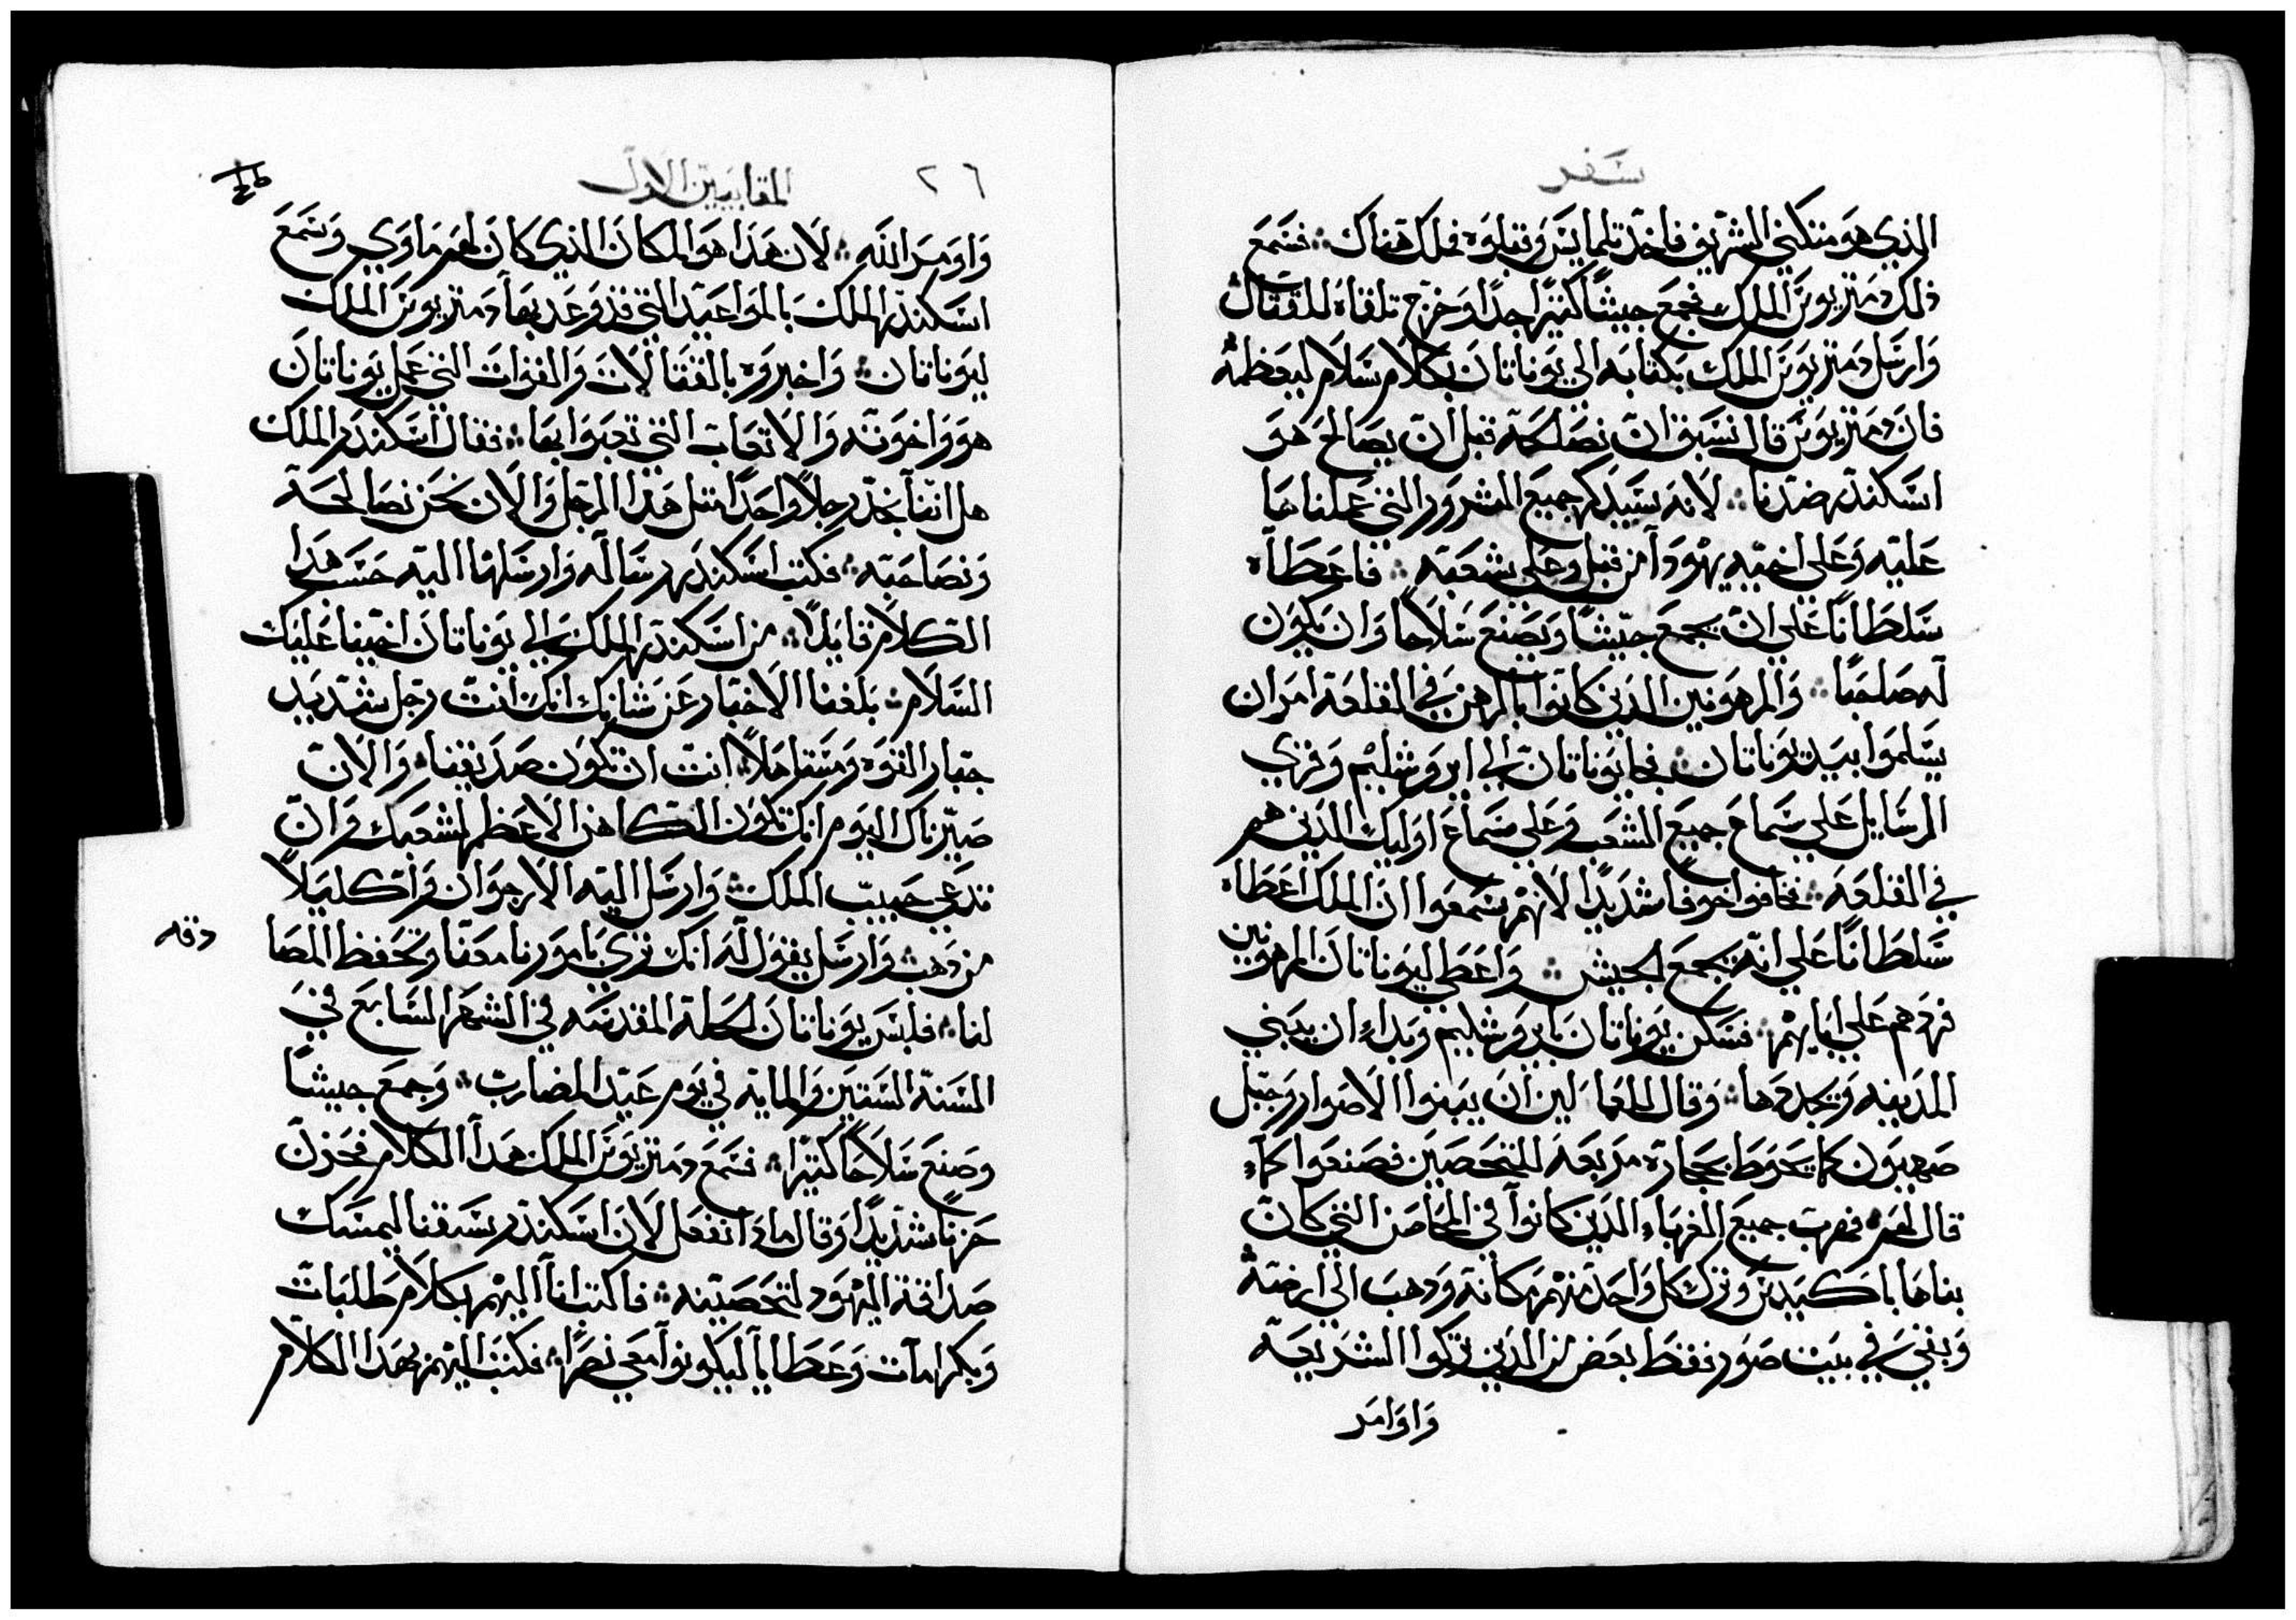 سفر
الذي هو متكني الشريف فاخذ تلمايس وقبلوه فملك هناك فسمع
ذلك دمتريوس الملك فجمع جيشًا كثيرًا جدًا وخرج تلقاه للقتال
وارسل دمتريوس الملك بكتابه الي يوناتان بكلام سلام ليعظمه
فان دمتريوس قال نسبق ان نصلحه قبل ان يصالح هو
اسكندر ضدنا لانه سيذكر جميع الشرور التي عملناها
عليه وعلي اخيه يهودا من قبل وعلي شعبه فاعطاه
سلطانًا علي ان يجمع جيشًا ويصنع سلاحا وان يكون
له صاحبًا والمرهونين الذين كانوا بالرهن في القلعة امر ان
يسلموا بيد يوناتان فجا يوناتان الي ايروشليم وقري
الرسايل علي سماع جميع الشعب وعلي سماع اوليك الذين هم
في القلعة فخافوا خوفا شديدًا لانهم سمعوا ان الملك اعطاه
سلطانًا علي انه يجمع الجيش واعطي ليوناتان المرهونين
فردهم علي ابايهم فسكن يوناتان بايروشليم وبداء ان يبني
المدينه ويجددها وقال للعمالين ان يبنوا الاصوار وجبل
صهيون كما يحوط بحجارة مربعة للتحصين فصنعوا كماء
قال لهم فهرب جميع الغرباء الذين كانوا في المحاصن التي كان
بناها باكيديس وترك كل واحد منهم مكانه وذهب الي ارضه
وبقي في بيت صور فقط بعض من الذين تركوا الشريعة
واوامر
٢٦
المقابيين الاول
واومر الله لان هذا هو المكان الذي كان لهم ماوي وسمع
اسكندر الملك بالمواعيد التي قد وعد بها دمتريوس الملك
ليوناتان واخبروه بالقتالات والغزوات التي عمل يوناتان
هو واخوته والاتعاب التي تعبوا بها فقال اسكندر الملك
هل اننا نجد رجلاً واحدًا مثل هذا الرجل والان نحن نصالحه
ونصاحبه فكتب اسكندر رساله وارسلها اليه حسب هذا
الكلام قايلاً من اسكندر الملك الي يوناتان اخينا عليك
السلام بلغنا الاخبار عن شانك انك انت رجل شديد
جبار القوه ومستاهلاً انت ان تكون صديقنا والان
صيرناك اليوم انك تكون الكاهن الاعظم لشعبك وان
تدعي حبيب الملك وارسل اليه الارجوان واكليلاً
من ذهب وارسل يقول له انك تري بامورنا معنا وتحفظ المصا
دقه
لنا فلبس يوناتان الحلة المقدسه في الشهر السابع في
السنة الستين والمايه في يوم عيد المضارب وجمع جيشًا
وصنع سلاحًا كثيرًا فسمع دمتريوس الملك هذا الكلام فحزن
حزنًا شديدًا وقال ماذا نفعل لان اسكندر سبقنا ليمسك
صداقة اليهود لتحصينه فاكتب انا اليهم بكلام طلبات
وبكرامات وعطايا ليكونوا معي نصرًا فكتب اليهم بهذا الكلام